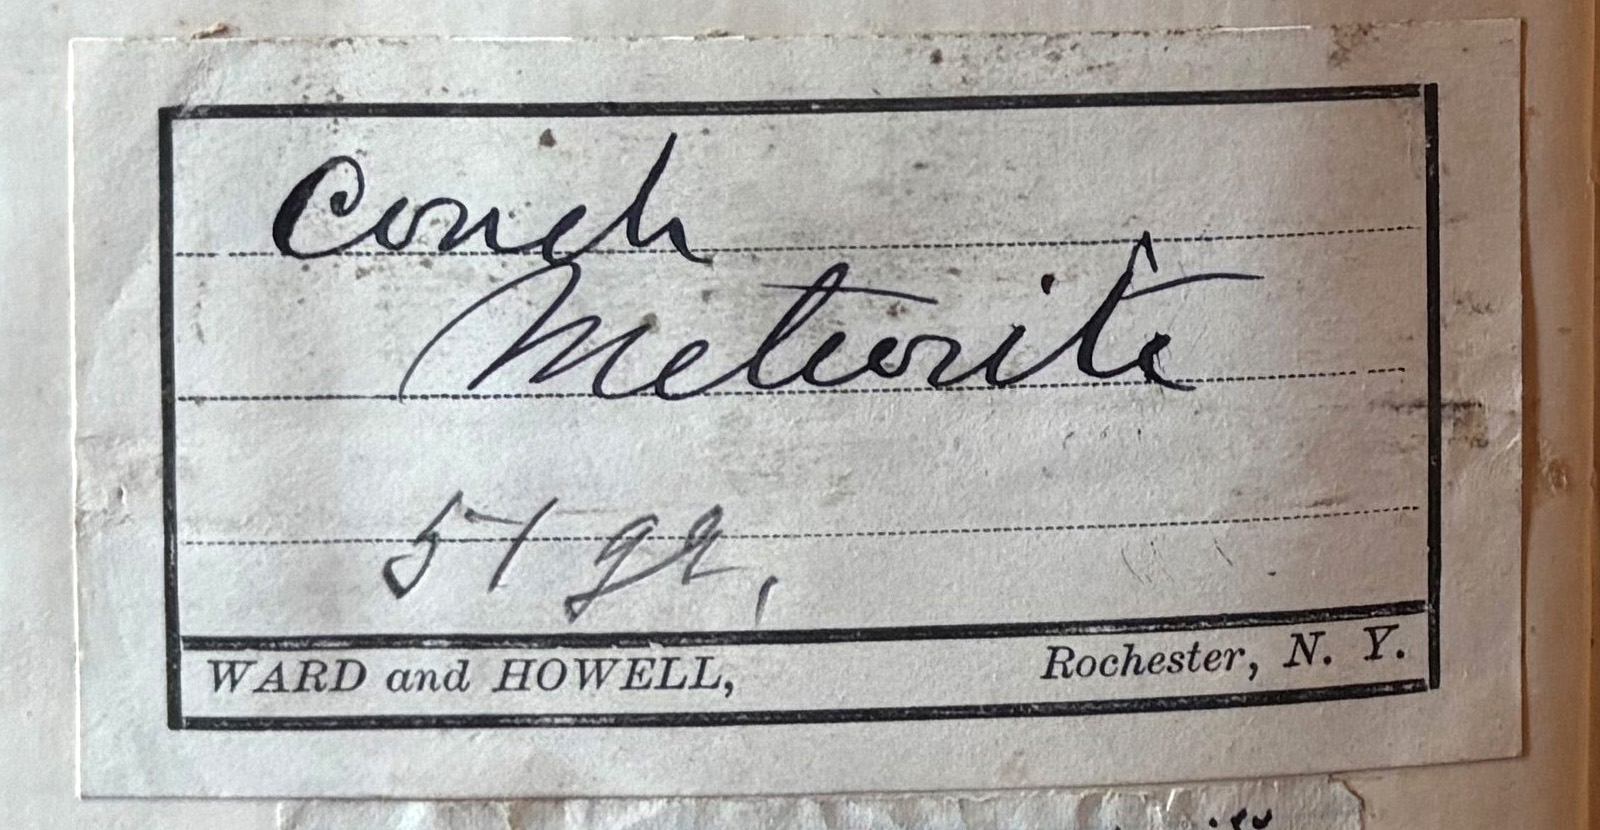 Couch
Meteorite
51 gr,
WARD and HOWELL, Rochester, N. Y.